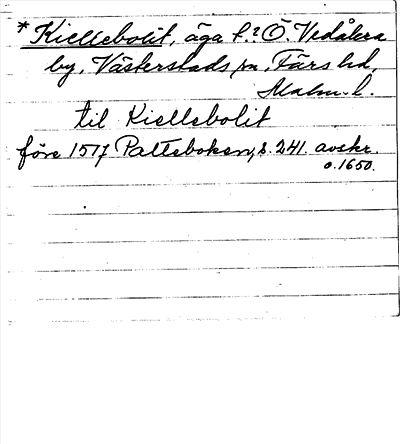 * Kiellebolit, äga f.? Ö. Vedåkra
by, Västerstads sn, Färs hd,
Malm. l.
til Kiellebolit
före 1517 Palteboken, s. 241. avskr.
o. 1650.